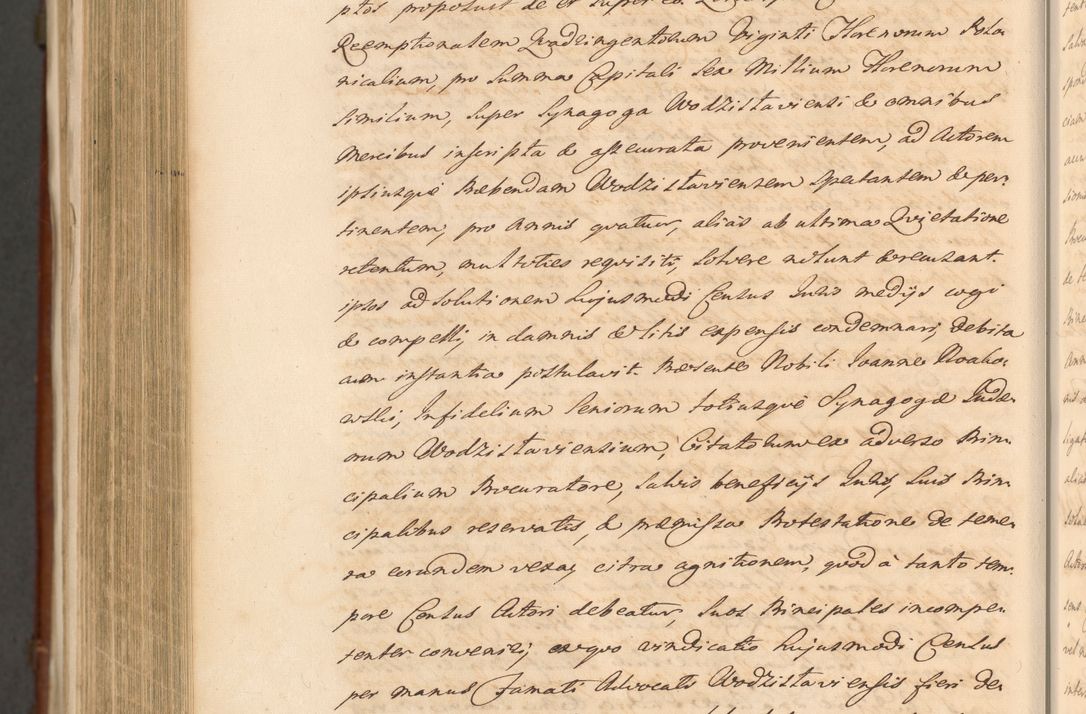 ptos proposuit de et super eo
Reemptionalem Quadringentorum Viginti Florenorum Polo
nicalium, pro Summa Capitali Sex Millium Florenorum
similium, super Synagoga Wodzislaviensi & omnibus
Mercibus inscripta & assecurata provenientem, ad Actorem
ipsiusque Præbendam Wodzislaviensem spectantem & per:
tinentem, pro Annis quatuor, aliàs ab ultima Quietatione
retentum, multoties requisiti, solvere nolunt & recusant.
ipsos ad solutionem hujusmodi Census Juris medijs cogi
& compelli, in damnis & litis expensis condemnari, debita
cum instantia postulavit. Præsente Nobili Joanne
wski, Infidelium Seniorum totiusque Synagogæ Judæ:
orum Wodzislaviensium, Citatorum ex adverso Prin:
cipalium Procuratore, salvis beneficijs Juris, suis Prin:
cipalibus reservatis, & præmissa Protestatione de teme:
ra eorundem vexa, citra agnitionem, quod à tanto tem:
pore Census Actori debeatur, suos Principales incompe:
tenter conveniri, ex quo vindicatio hujusmodi Census
per manus Famati Advocati Wodzislaviensis fieri de: